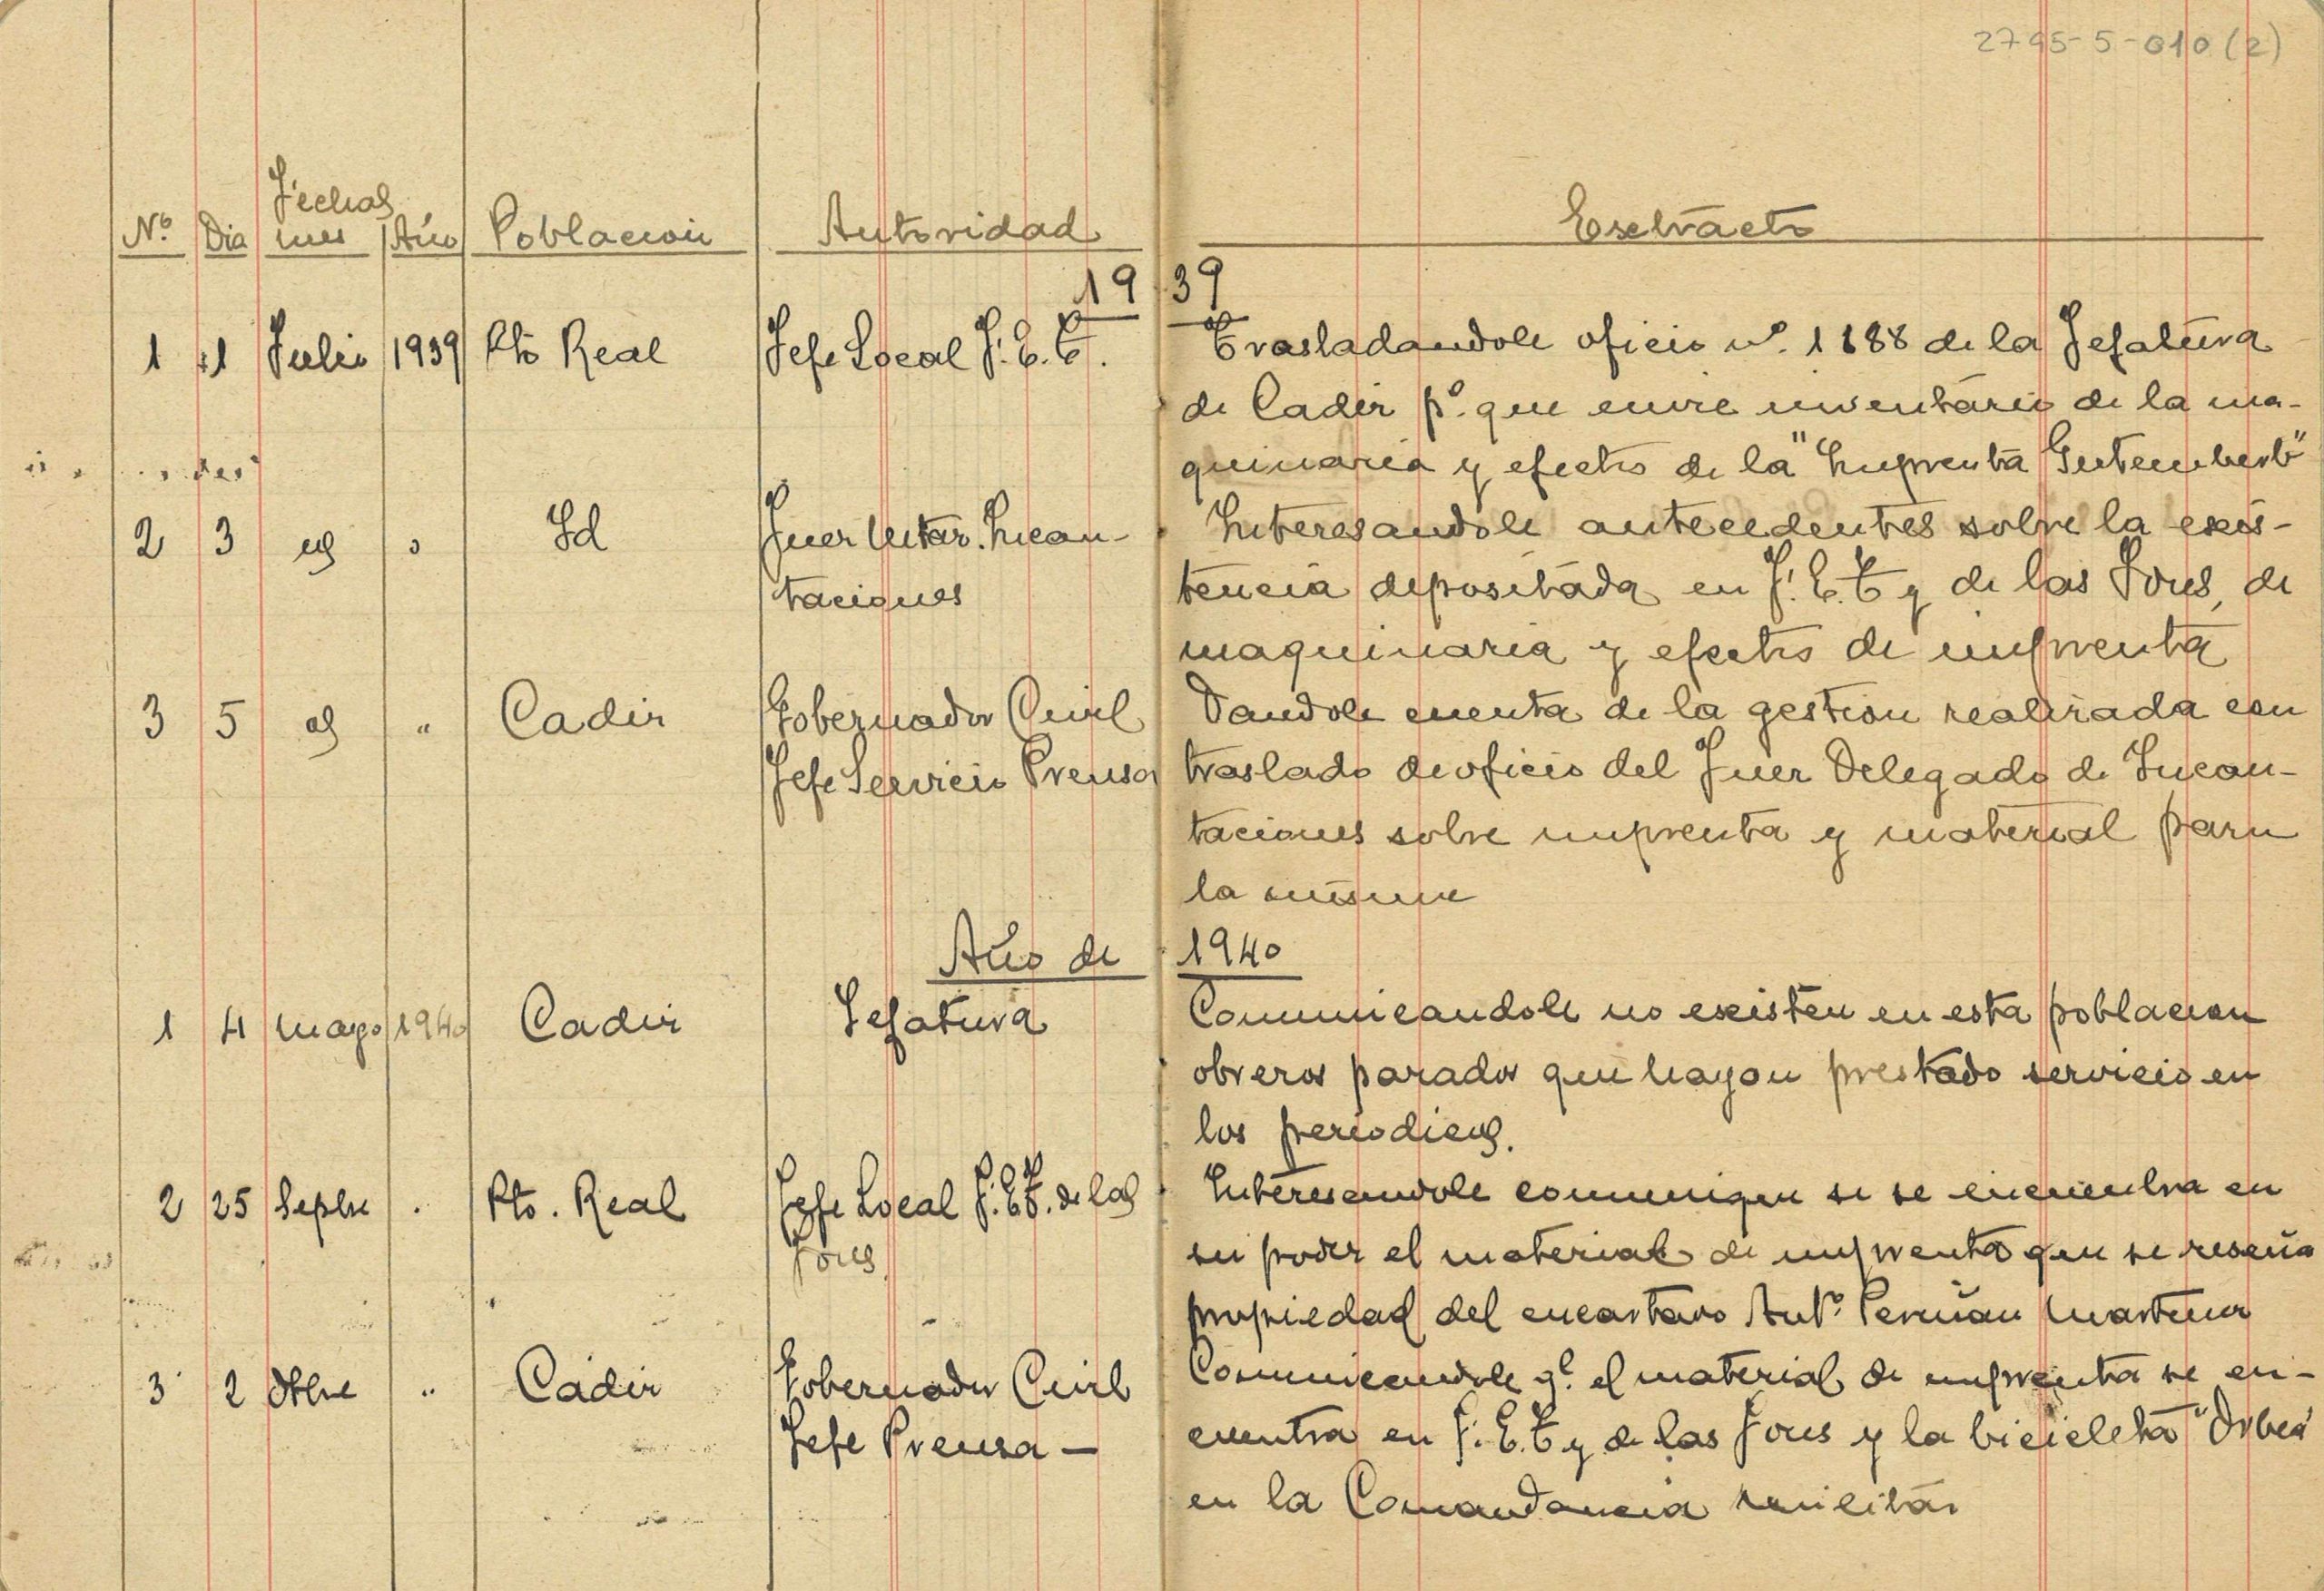 2795-5-010 (2)
Fechas
Nº Dia mes Año Poblacion Autoridad Esctracto
1939
1 1 Julio 1939 Pto Real Jefe Local F. E. T. Trasladandole oficio nº. 1188 de la Jefatura
de Cadiz pª. que envie inventario de la ma-
quinaria y efectos de la "Imprenta Gutemberb"
2 3 id " Id Juez Incau- Interesandole antecedentes sobre la exis-
taciones tencia depositada en F. E. T y de las Jons, de
maquinaria y efectos de imprenta
3 5 id " Cadiz Gobernador Civil Dandole cuenta de la gestion realizada con
Jefe Servicio Prensa traslado de oficio del Juez Delegado de Incau-
taciones sobre imprenta y material para
la misma
Año de 1940
1 4 mayo 1940 Cadiz Jefatura Comunicandole no existen en esta poblacion
obreros parados que hayan prestado servicio en
los periodicos.
2 25 Sepbre . Pto. Real Jefe Local F. E T. de las Interesandole comunique si se encuentra en
Jons su poder el material de imprenta que se reseña
propiedad del encartado Antº Martinez
3 2 Otbre " Cadiz Gobernador Civil Comunicandole qe. el material de imprenta se en-
Jefe Prensa — cuentra en F. E. T y de las Jons y la bicicleta "Orbea"
en la Comandancia militar